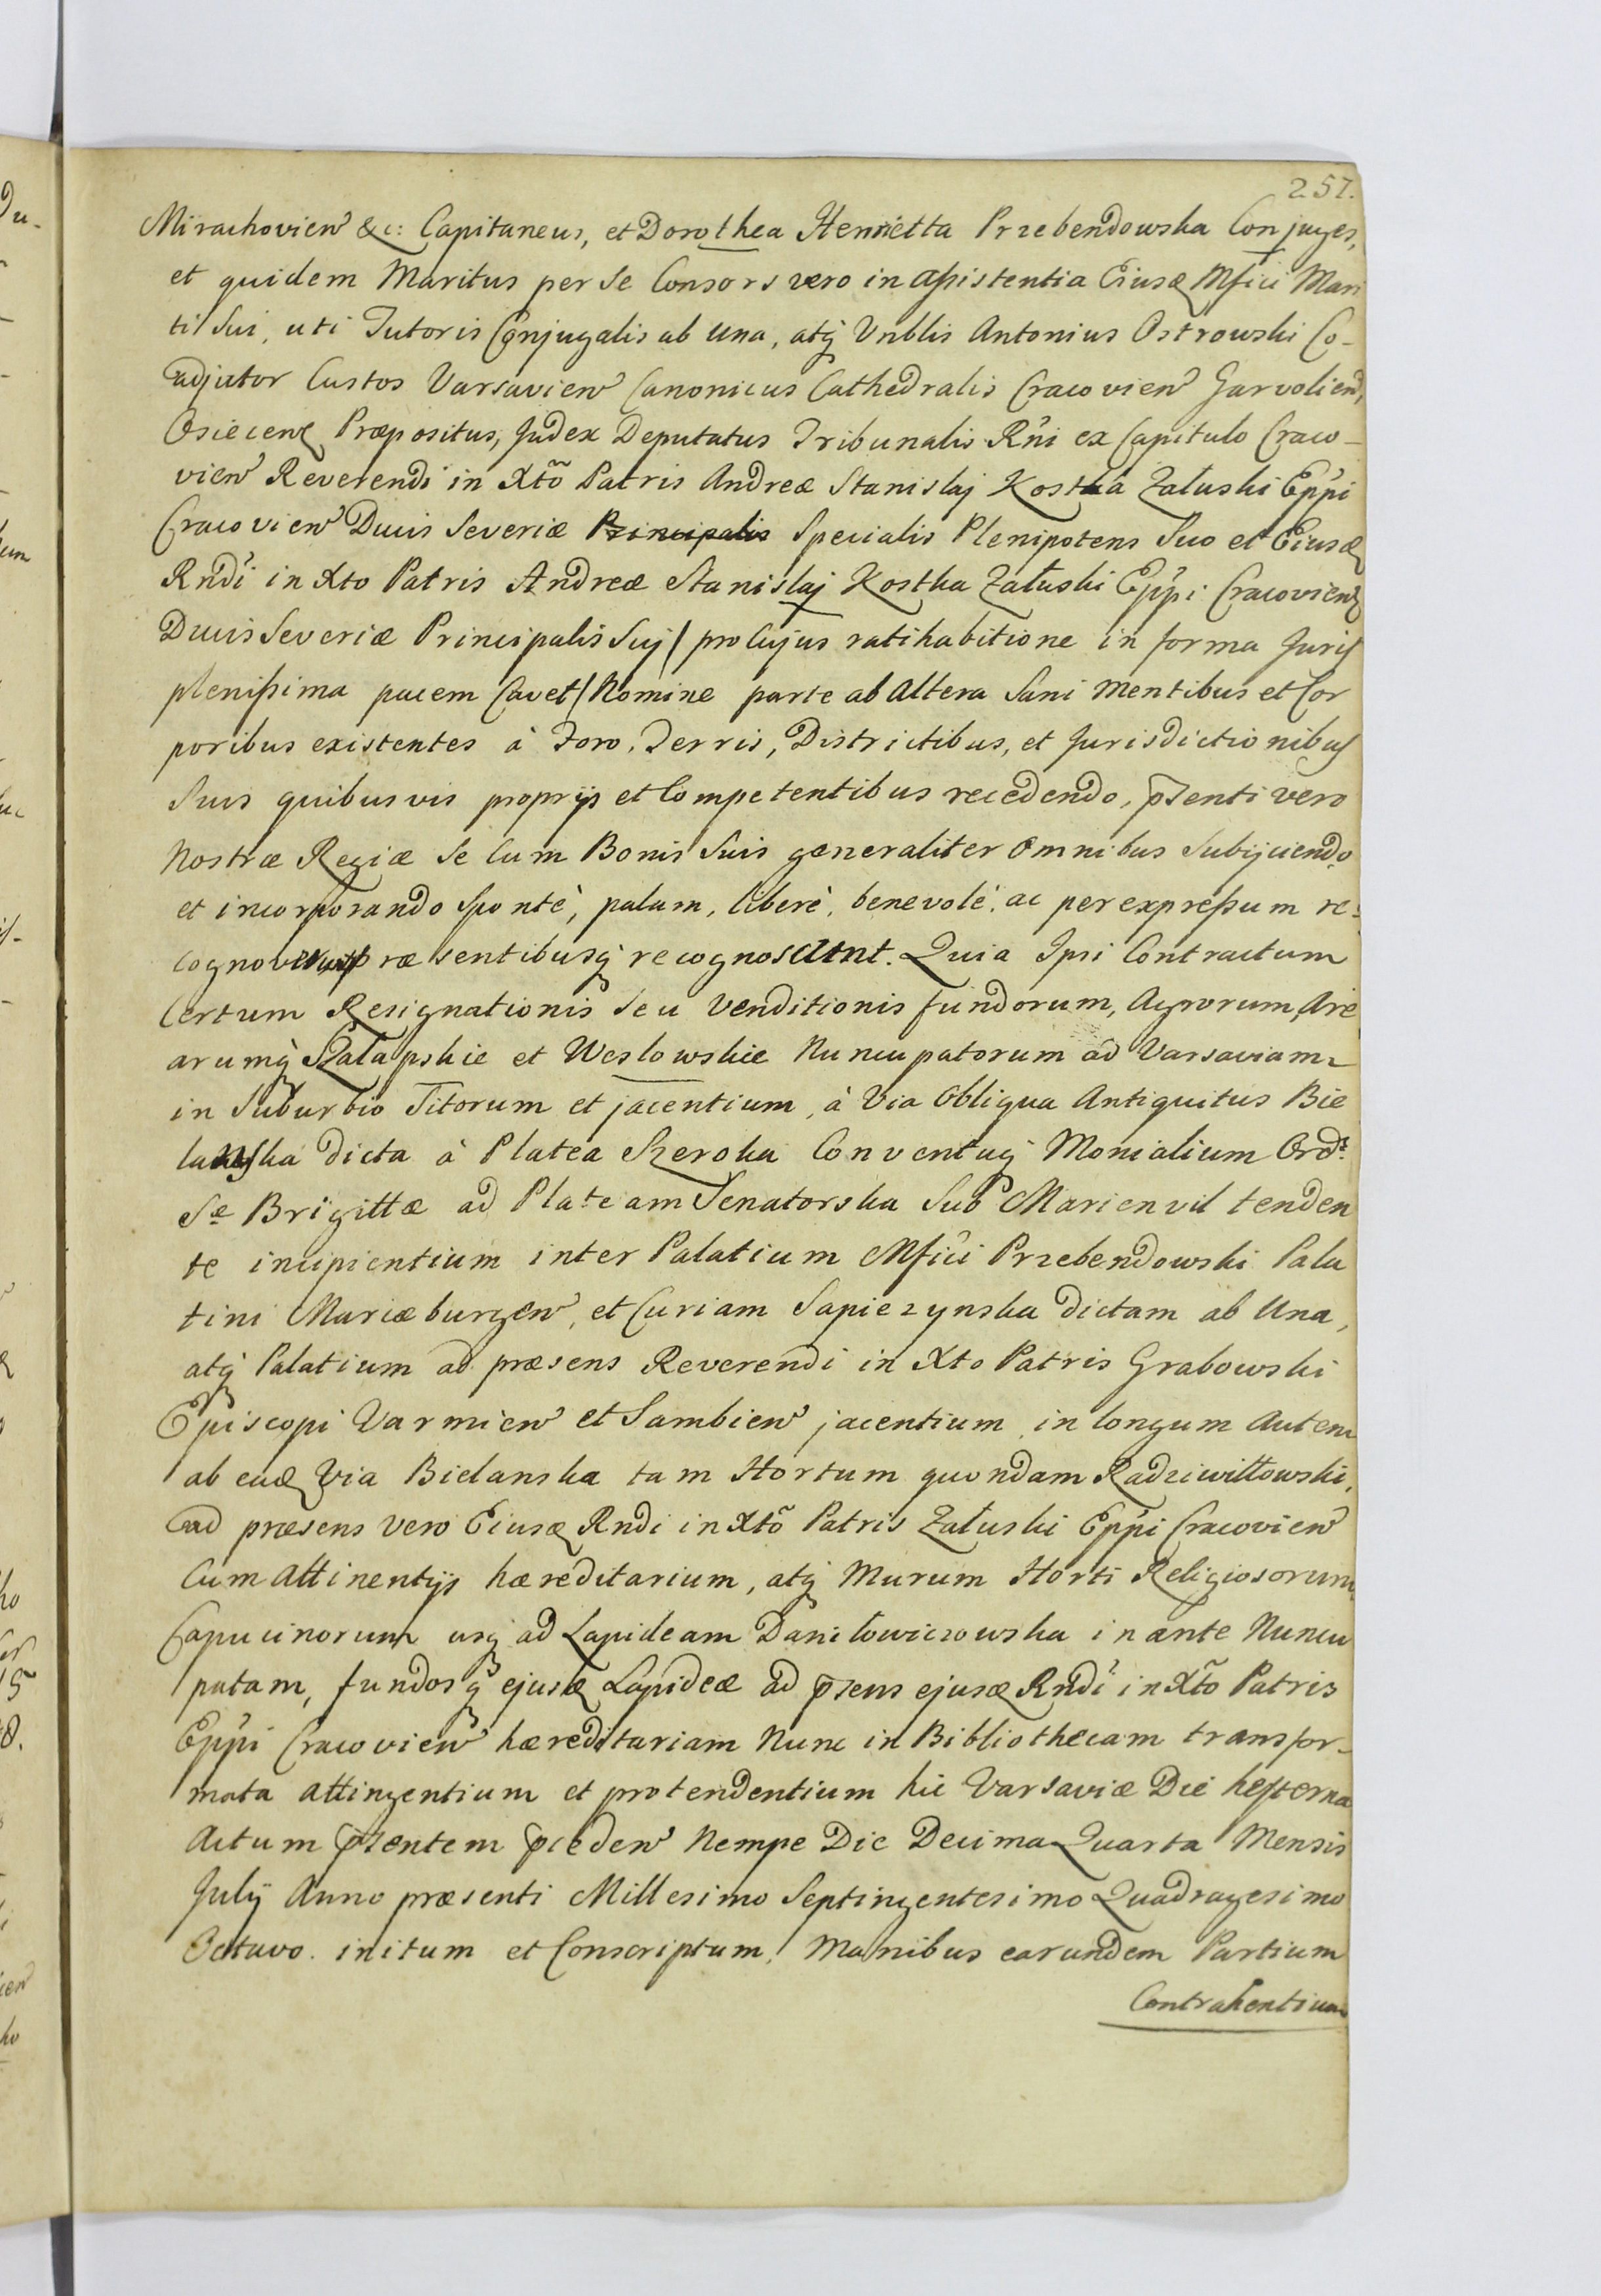 257.
Mirachovien̄ &c: Capitaneus, et Dorothea Henrietta Przebendowska Conjuges,
et quidem Maritus per se Consors vero in assistentia Eiusd Mfici Mari
ti sui, uti Tutoris Conjugalis ab una, atq́ Vnblis Antonius Ostrowski Co-
adjutor Custos Varsavien̄ Canonicus Cathedralis Cracovien̄ Garvolien̄,
Osiecen̄ Præpositus, Judex Deputatus Tribunalis Rñi ex Capitulo Craco-
vien̄ Reverendi in Xtõ Patris Andreæ Stanislaj Kostka Załuski Epp̃i
Cracovien̄ Ducis Severiæ Principalis Specialis Plenipotens Suo et Eiusd
Rndĩ in Xto Patris Andreæ Stanislaj Kostka Załuski Epp̃i Cracovien̄
Ducis Severiæ Principalis Suj / pro Cujus ratihabitione in forma Juris
plenissima pacem Cavet / Nomine parte ab Altera Sani Mentibus et Cor
poribus existentes à Foro, Terris, Districtibus, et Jurisdictionibus
Suis quibusvis proprijs et Competentibus recedendo, p̄senti vero
Nostræ Regiæ Se Cum Bonis Suis generaliter Omnibus Subijciendo
et incorporando Sponté, palam, liberè, benevolé, ac per expressum re=
cognoverunt præsentibusq́ recognoscunt. Quia Ipsi Contractum
Certum Resignationis Seu Venditionis fundorum, Agrorum, Are
arumq́ Szałapskie et Weslowskie Nuncupatorum ad Varsaviam
in Suburbio Sitorum et jacentium, à Via Obliqua Antiquitus Bie
lanska dicta à Platea Szeroka Conventuq́ Monialium Ord:s
Sæ Brigittæ ad Plateam Senatorska Sub Marienvil tenden
te incipientium inter Palatium Mfici Przebendowski Pala
tini Mariæburgen̄, et Curiam Sapiezynska dictam ab Una,
atq́ Palatium ad præsens Reverendi in Xto Patris Grabowski
Episcopi Varmien̄ et Sambien̄ jacentium in longum Autem
ab ead Via Bielanska tam Hortum quondam Radziwiłłowski,
ad præsens vero Eiusd Rndi in Xtõ Patris Załuski Epp̃i Cracovien̄
Cum Attinentijs hæreditarium, atq́ Murum Horti Religiosorum
Capucinorum usq́ ad Lapideam Daniłowiczowska in ante Nuncu
patam, fundosq́ ejusd Lapideæ ad p̄sens ejusd Rndĩ in Xtõ Patris
Epp̃i Cracovien̄ hæreditariam Nunc in Bibliothecam transfor-
mata attingentium et protendentium hic Varsaviæ Die hesterna
Actum p̄sentem p̄ceden̄ Nempe Die Decima Quarta Mensis
Julÿ Anno præsenti Millesimo Septingentesimo Quadragesimo
Octavo. initum et Conscriptum, Manibus earundem Partium
Contrahentium